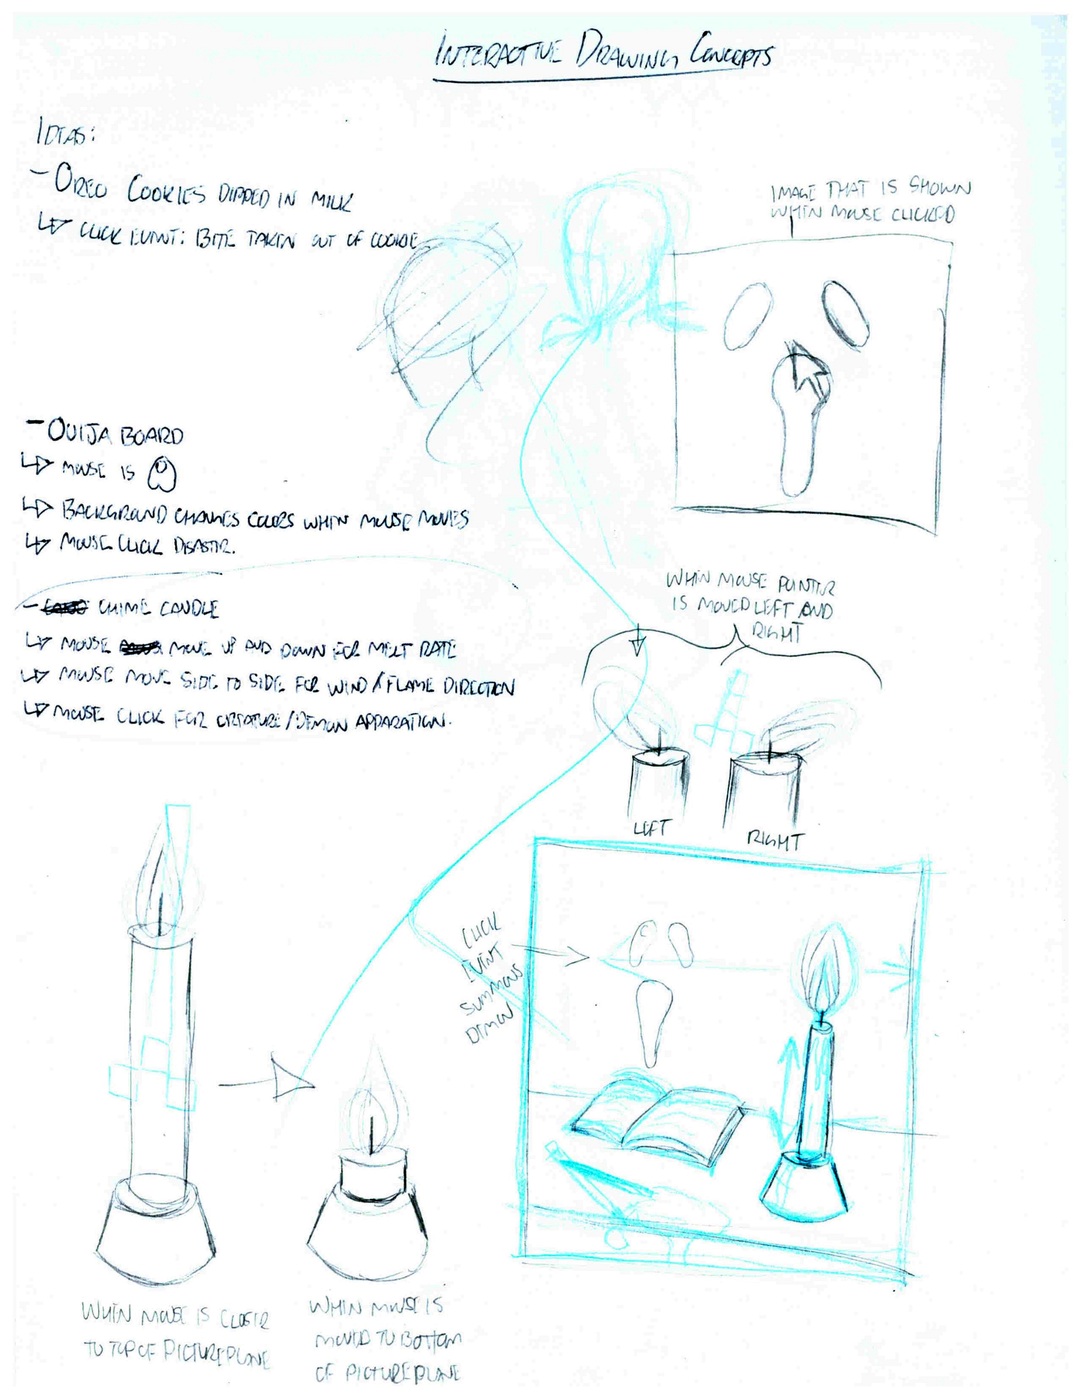 INTERACTIVE DRAWING CONCEPTS
IDEAS:
- OREO COOKIES DIPPED IN MILK
↳ CLICK EVENT: BITE TAKEN OUT OF COOKIE
IMAGE THAT IS SHOWN
WHEN MOUSE CLICKED
- OUIJA BOARD
↳ MOUSE IS
↳ BACKGROUND CHANGES COLORS WHEN MOUSE MOVES
↳ MOUSE CLICK DISASTER.
- CHIME CANDLE
↳ MOUSE MOVE UP AND DOWN FOR MELT RATE
↳ MOUSE MOVE SIDE TO SIDE FOR WIND/FLAME DIRECTION
↳ MOUSE CLICK FOR CREATURE/DEMON APPARATION.
WHEN MOUSE POINTER
IS MOVED LEFT AND
RIGHT
LEFT
RIGHT
CLICK
EVENT
SUMMONS
DEMON
WHEN MOUSE IS CLOSER
TO TOP OF PICTURE PLANE
WHEN MOUSE IS
MOVED TO BOTTOM
OF PICTURE PLANE